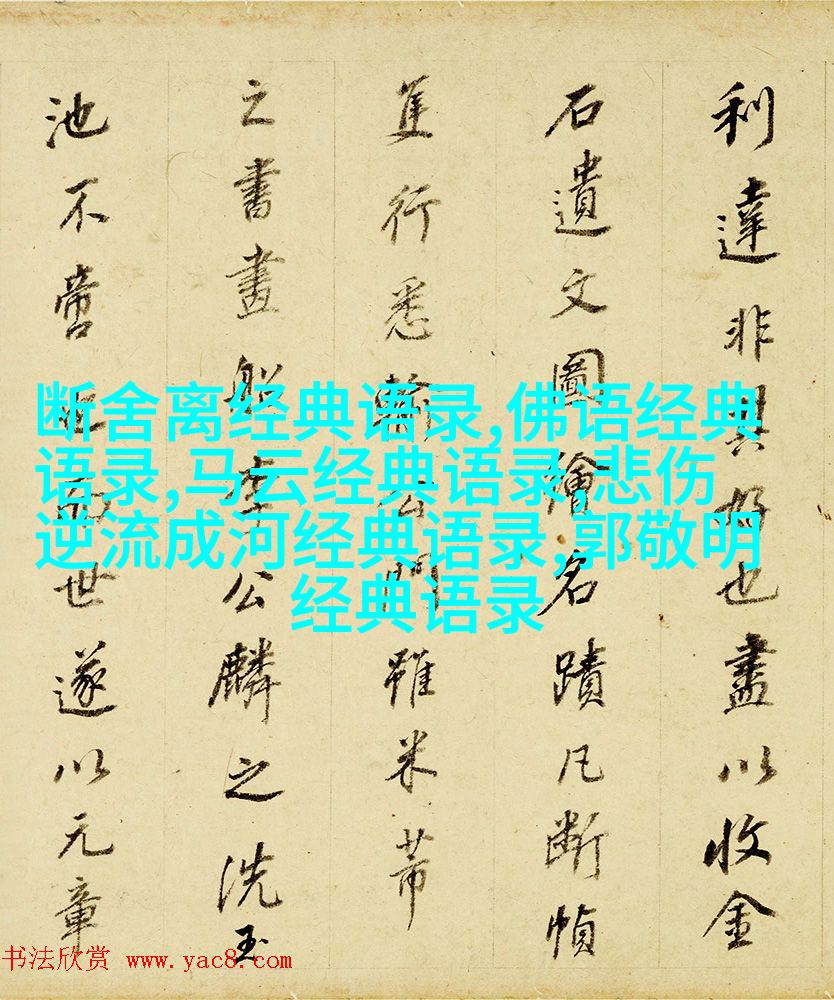 利達非其好也盡以收金
石遺文圖繪名蹟凡斷幀
隻行悉輸公門雖米芾
之書畫船李公麟之洗玉
池不啻世遂以元章
断舍离经典语录,佛语经典
语录,马云经典语录,悲伤
逆流成河经典语录,郭敬明
经典语录
书法欣赏 www.yac8.com